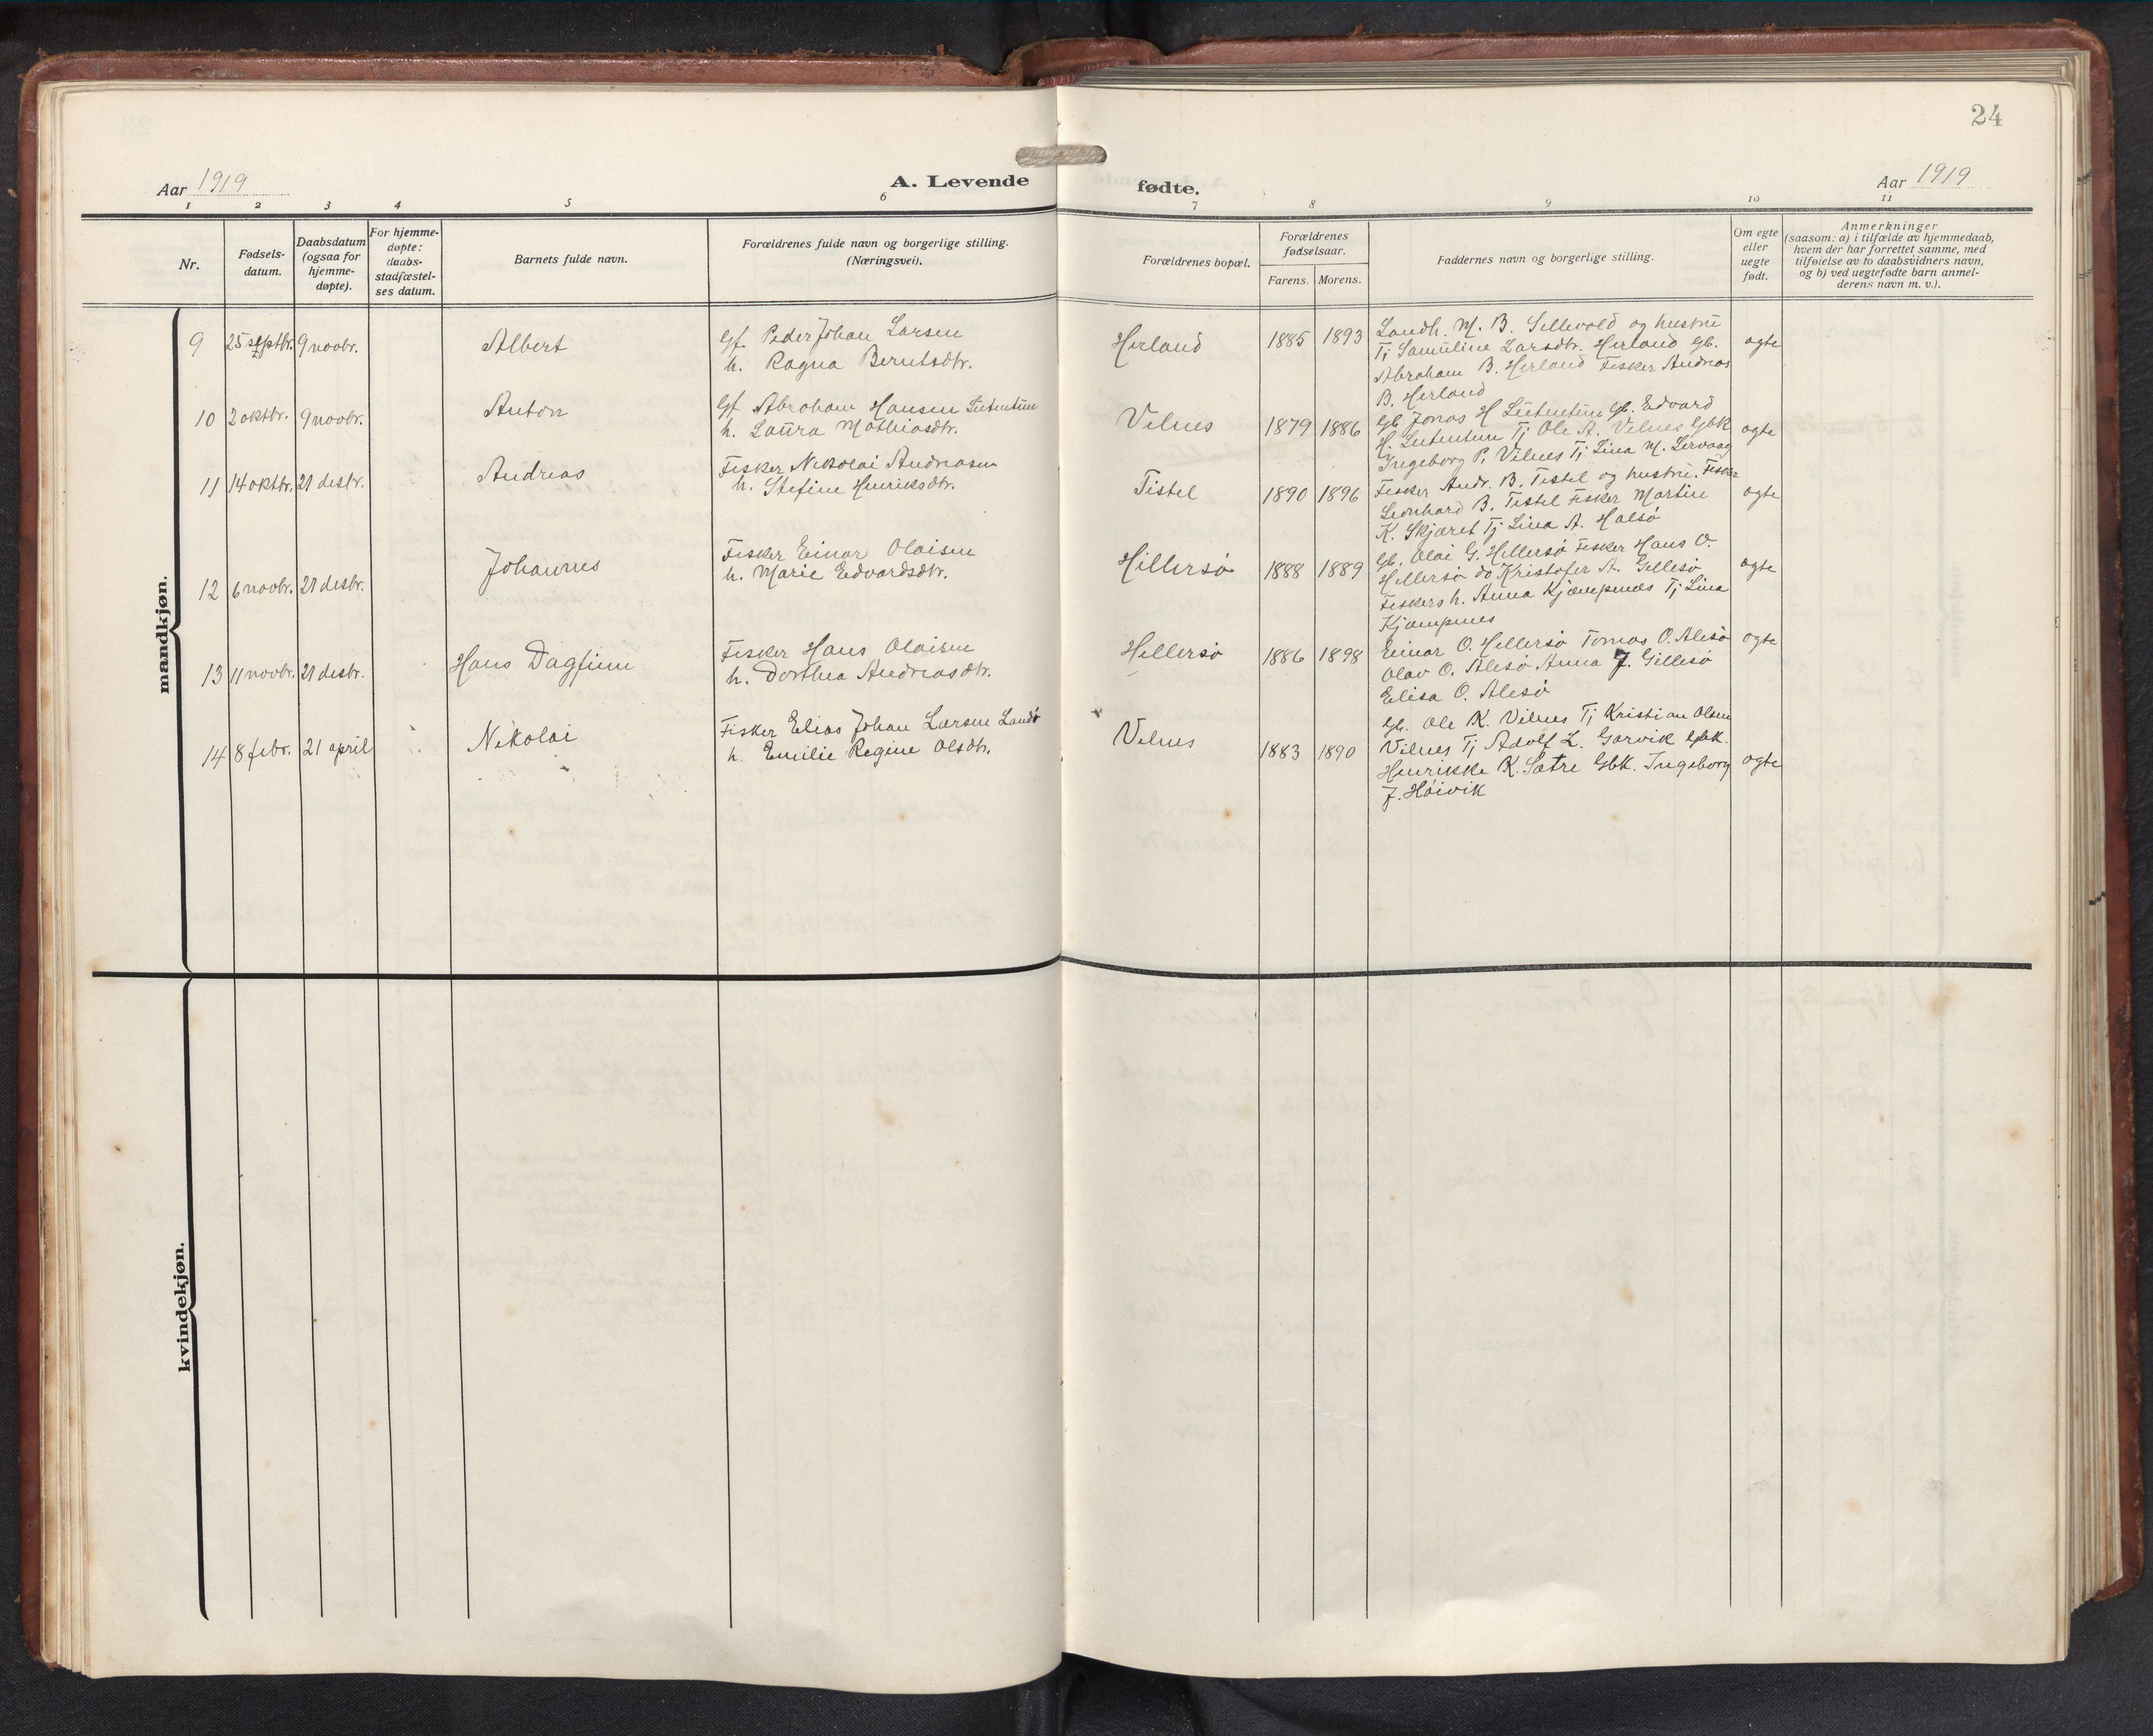 24
Aar 1919
A. Levende fødte.
Aar 1919
1 2 3 4 5 6 7 8 9 10 11
Nr.
Fødsels-
datum.
Daabsdatum
(ogsaa for
hjemme-
døpte).
For hjemme-
døpte:
daabs-
stadfæstel-
ses datum.
Barnets fulde navn.
Forældrenes fulde navn og borgerlige stilling.
(Næringsvei).
Forældrenes bopæl.
Forældrenes
fødselsaar.
Farens. Morens.
Faddernes navn og borgerlige stilling.
Om egte
eller
uegte
født.
Anmerkninger
(saasom: a) i tilfælde av hjemmedaab,
hvem der har forrettet samme, med
tilføielse av to daabsvidners navn,
og b) ved uegtefødte barn anmel-
derens navn m. v.).
mandkjøn.
9 25 septbr. 9 novbr. Albert
Gf. Peder Johan Larsen
h. Ragna Berntsdtr.
Herland 1885 1893
Landh. M. B. Sellevold og hustru
Tj Samuline Larsdtr. Herland Gb.
Abraham B. Herland Fisker Andreas
B. Herland
egte
10 2 oktbr. 9 novbr. Anton
Gf. Abraham Hansen Lutentun
h. Laura Mathiasdtr.
Vilnes 1879 1886
Gb Jonas H Lutentun Gb. Edvard
H. Lutentun Tj Ole A. Vilnes Gbk
Ingeborg P. Vilnes Tj Lina M. Lervaag
egte
11 14 oktbr. 21 desbr. Andreas
Fisker Nikolai Andreasen
h. Stefine Henriksdtr.
Tistel 1890 1896
Fisker Andr. B. Tistel og hustru. Fisker
Leonhard B. Tistel Fisker Martin
K. Skjæret Tj Lina A. Halsø
egte
12 6 novbr. 21 desbr. Johannes
Fisker Einar Olaisen
h. Marie Edvardsdtr.
Hillersø 1888 1889
Gb. Olai G. Hillersø Fisker Hans O.
Hillersø do Kristofer A. Gillesø
Fiskers h. Anna Kjempenes Tj Lina
Kjempenes
egte
13 11 novbr. 21 desbr. Hans Dagfinn
Fisker Hans Olaisen
h. Dorthea Andreasdtr.
Hillersø 1886 1898
Einar O. Hillersø Tomas O. Alesø
Olav O. Alesø Anna J. Gillesø
Elisa O. Alesø
egte
14 8 febr. 21 april Nikolai
Fisker Elias Johan Larsen Landø
h. Emilie Regine Olsdtr.
Vilnes 1883 1890
Gb. Ole K. Vilnes Tj Kristian Olsen
Vilnes Tj Adolf L. Garvik Gbk.
Henrikke K. Sætre Gbk. Ingeborg
J. Høivik
egte
kvindekjøn.